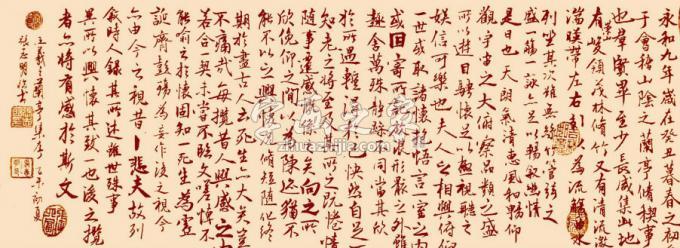 永和九年歲在癸丑暮春之初
于會稽山陰之蘭亭脩稧事
也群賢畢至少長咸集此地
有峻領茂林脩竹又有清流激
湍暎帶左右引以為流觴曲水
列坐其次雖無絲竹管弦之
盛一觴一詠亦足以暢敘幽情
是日也天朗氣清惠風和暢仰
觀宇宙之大俯察品類之盛
所以遊目騁懷足以極視聽之
娛信可樂也夫人之相與俯仰
一世或取諸懷抱悟言一室之內
或因寄所託放浪形骸之外雖
趣舍萬殊靜躁不同當其欣
於所遇蹔得於己快然自足不
知老之將至及其所之既惓情
隨事遷感慨係之矣向之所
欣俛仰之間以為陳迹猶不
能不以之興懷況脩短隨化終
期於盡古人云死生亦大矣豈
不痛哉每攬昔人興感之由
若合一契未嘗不臨文嗟悼不
能喻之於懷固知一死生為虛
誕齊彭殤為妄作後之視今
亦由今之視昔悲夫故列
敘時人錄其所述雖世殊事
異所以興懷其致一也後之攬
者亦將有感於斯文
王羲之蘭亭集序 乙未初夏